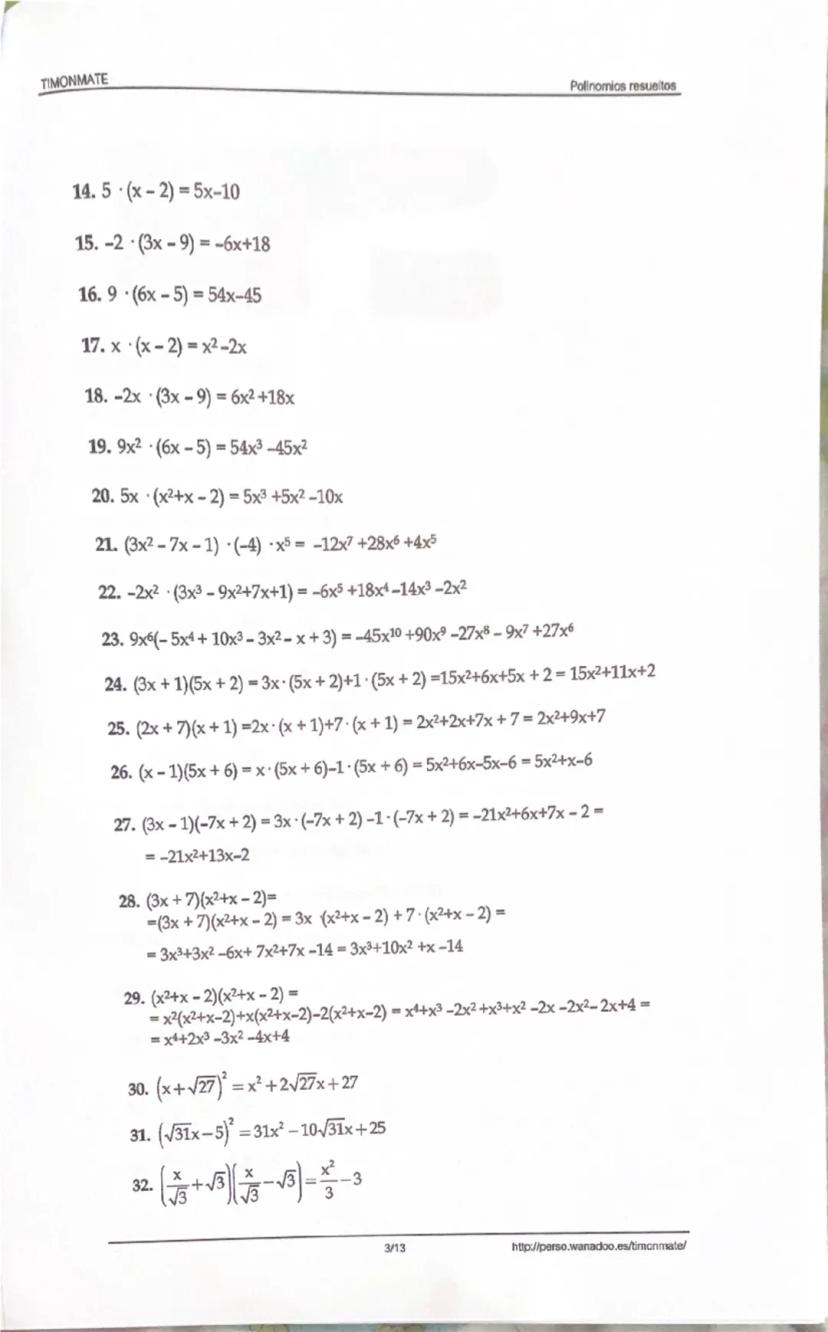 TIMONMATE
Polinomios resueltos
14. 5 ·(x – 2) = 5x–10
15. –2 ·(3x – 9) = –6x+18
16. 9 ·(6x – 5) = 54x–45
17. x ·(x – 2) = x² –2x
18. –2x ·(3x – 9) = 6x² +18x
19. 9x² ·(6x – 5) = 54x³ –45x²
20. 5x ·(x²+x – 2) = 5x³ +5x² –10x
21. (3x² – 7x – 1) ·(–4) ·x⁵ = –12x⁷ +28x⁶ +4x⁵
22. –2x² ·(3x³ – 9x²+7x+1) = –6x⁵ +18x⁴ –14x³ –2x²
23. 9x⁶(– 5x⁴ + 10x³ – 3x² – x + 3) = –45x¹⁰ +90x⁹ –27x⁸ – 9x⁷ +27x⁶
24. (3x + 1)(5x + 2) = 3x· (5x + 2)+1 · (5x + 2) =15x²+6x+5x + 2 = 15x²+11x+2
25. (2x + 7)(x + 1) =2x · (x + 1)+7 · (x + 1) = 2x²+2x+7x + 7 = 2x²+9x+7
26. (x – 1)(5x + 6) = x · (5x + 6)–1 · (5x + 6) = 5x²+6x–5x–6 = 5x²+x–6
27. (3x – 1)(–7x + 2) = 3x · (–7x + 2) –1 · (–7x + 2) = –21x²+6x+7x – 2 =
= –21x²+13x–2
28. (3x + 7)(x²+x – 2)=
=(3x + 7)(x²+x – 2) = 3x ·(x²+x – 2) + 7 · (x²+x – 2) =
= 3x³+3x² –6x+ 7x²+7x –14 = 3x³+10x² +x –14
29. (x²+x – 2)(x²+x – 2) =
= x²(x²+x–2)+x(x²+x–2)–2(x²+x–2) = x⁴+x³ –2x² +x³+x² –2x –2x² – 2x+4 =
= x⁴+2x³ –3x² –4x+4
30. (x+√27)² = x² + 2√27x + 27
31. (√31x – 5)² = 31x² – 10√31x + 25
32. (x/√3 + √3)(x/√3 – √3) = x²/3 – 3
3/13
http://perso.wanadoo.es/timonmate/